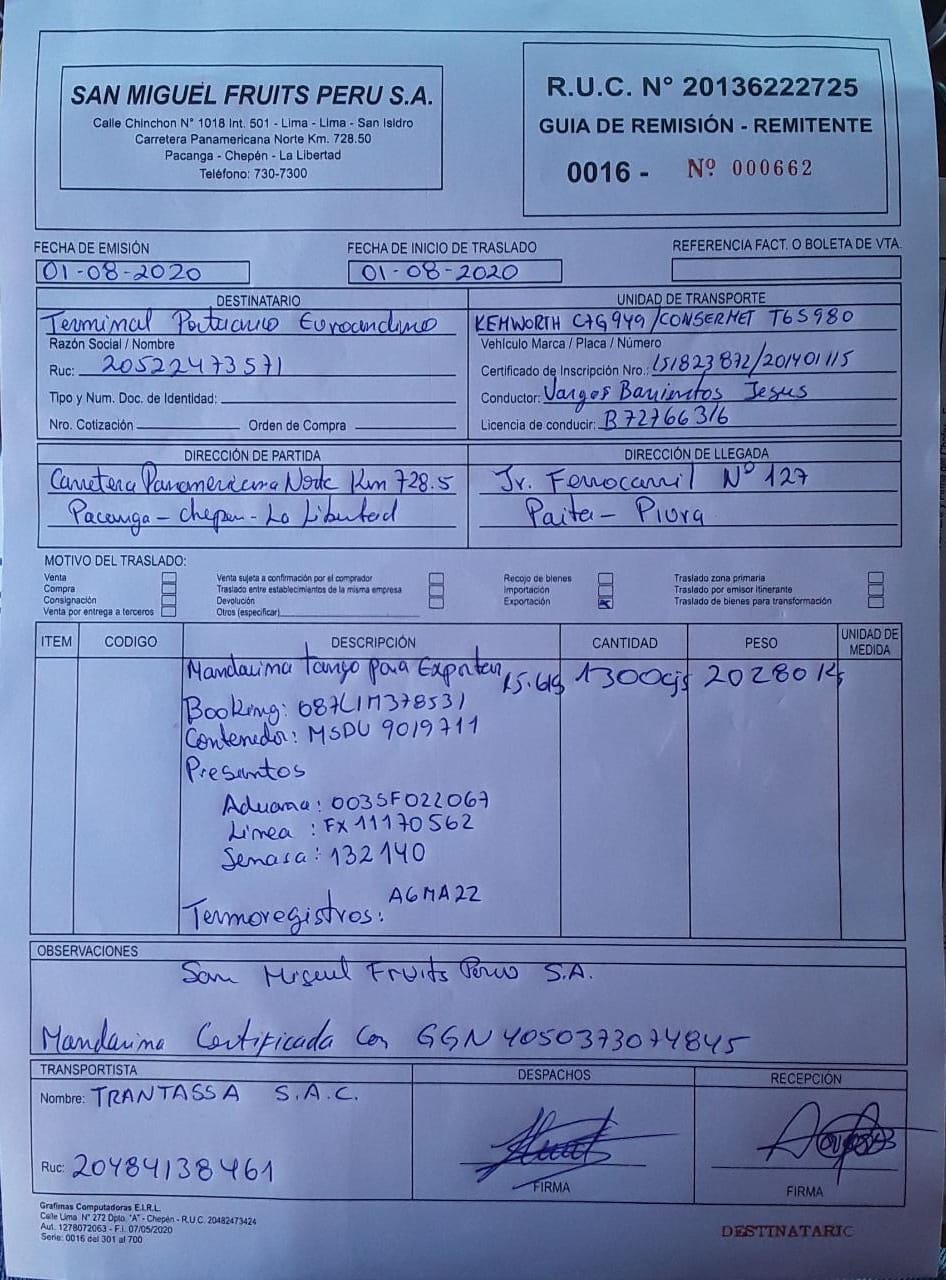 SAN MIGUEL FRUITS PERU S.A.
Calle Chinchon N° 1018 Int. 501 - Lima - Lima - San Isidro
Carretera Panamericana Norte Km. 728.50
Pacanga - Chepén - La Libertad
Teléfono: 730-7300
R.U.C. N° 20136222725
GUIA DE REMISIÓN - REMITENTE
0016 - Nº 000662
FECHA DE EMISIÓN
01-08-2020
FECHA DE INICIO DE TRASLADO
01-08-2020
REFERENCIA FACT. O BOLETA DE VTA.
DESTINATARIO
Terminal Portuario Euroandino
Razón Social / Nombre
Ruc: 20522473571
Tipo y Num. Doc. de Identidad:
Nro. Cotización Orden de Compra
UNIDAD DE TRANSPORTE
KEMWORTH C7G949/CONSERMET T6S980
Vehículo Marca / Placa / Número
Certificado de Inscripción Nro.: 151823872/201401115
Conductor: Vargas Barrientos Jesus
Licencia de conducir: B72766316
DIRECCIÓN DE PARTIDA
Carretera Panamericana Norte Km 728.5
Pacanga - Chepen - La Libertad
DIRECCIÓN DE LLEGADA
Jr. Ferrocarril Nº 127
Paita - Piura
MOTIVO DEL TRASLADO:
Venta
Compra
Consignación
Venta por entrega a terceros
Venta sujeta a confirmación por el comprador
Traslado entre establecimientos de la misma empresa
Devolución
Otros (especificar)
Recojo de bienes
Importación
Exportación
Traslado zona primaria
Traslado por emisor itinerante
Traslado de bienes para transformación
ITEM CODIGO DESCRIPCIÓN CANTIDAD PESO UNIDAD DE MEDIDA
Mandarina tango para Exportar 15.6kg 1300cjs 20280 K
Booking: 087LIM378531
Contenedor: MSDU 9019711
Presintos
Aduana: 003SF022067
Linea : FX11170562
Senasa: 132140
Termoregistros: A6MA22
OBSERVACIONES
San Miguel Fruits Peru S.A.
Mandarina Certificada con GGN 4050373074845
TRANSPORTISTA
Nombre: TRANTASSA S.A.C.
Ruc: 20484138461
DESPACHOS
FIRMA
RECEPCIÓN
FIRMA
Grafimas Computadoras E.I.R.L.
Calle Lima N° 272 Dpto. "A" - Chepén - R.U.C. 20482473424
Aut. 1278072063 - F.I. 07/05/2020
Serie: 0016 del 301 al 700
DESTINATARIO